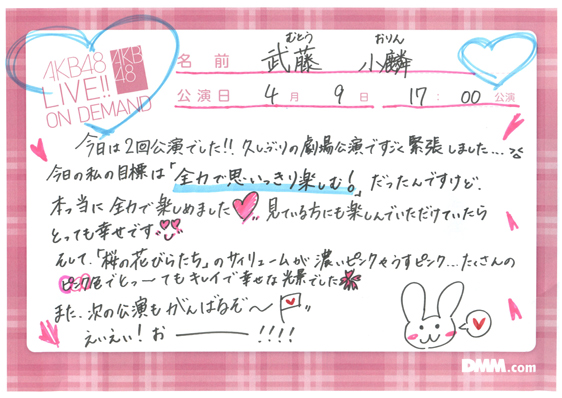 AKB48
LIVE!!
ON DEMAND
AKB
48
むとう おりん
名前 武藤 小麟
公演日 4月 9日 17:00 公演
今日は2回公演でした!! 久しぶりの劇場公演ですごく緊張しました...
今日の私の目標は「全力で思いっきり楽しむ!」だったんですけど、
本当に全力で楽しめました 見ている方にも楽しんでいただけていたら
とっても幸せです
そして、「桜の花びらたち」のサイリュームが濃いピンクやうすピンク...たくさんの
ピンク色でとっーてもキレイで幸せな光景でした
また、次の公演もがんばるぞ〜
えいえい!お———!!!!
DMM.com